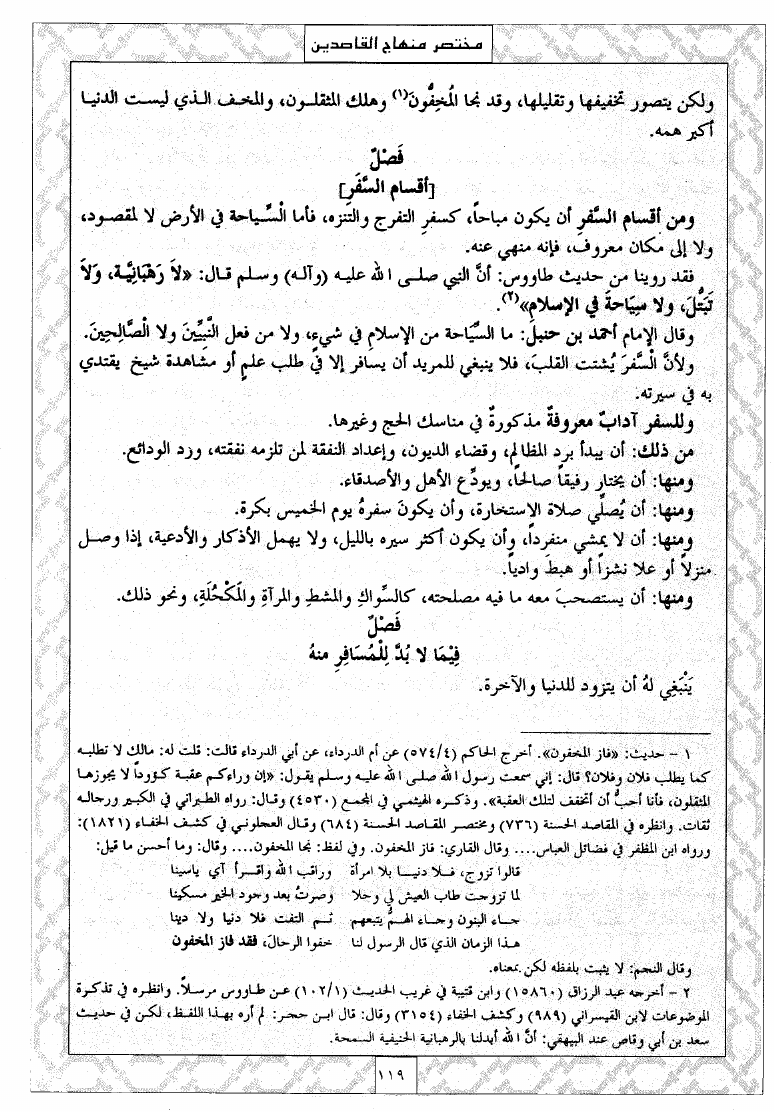 مختصر منهاج القاصدين
ولكن يتصور تخفيفها وتقليلها، وقد نجا المُخِفُّونَ(١) وهلك المثقلون، والمخف الذي ليست الدنيا
أكبر همه.
فَصْلٌ
[أقسام السَّفَرِ]
ومن أقسام السَّفرِ أن يكون مباحاً، كسفرِ التفرج والتنزه، فأما الْسِّياحة في الأرض لا لمقصود،
ولا إلى مكان معروف، فإنه منهي عنه.
فقد روينا من حديث طاووس: أنَّ النبي صلى الله عليه (وآله) وسلم قال: «لاَ رَهْبَانِيَّة، وَلاَ
تَبَتُّلَ، ولا سِيَاحةَ في الإسلام»(٢).
وقال الإمام أحمد بن حنبل: ما السِّيَاحة من الإسلام في شيءٍ، ولا من فعل النَّبِيِّينَ ولا الْصَّالِحِينَ.
ولأنَّ الْسَّفرَ يُشتت القلبَ، فلا ينبغي للمريد أن يسافر إلا في طلب علمٍ أو مشاهدة شيخ يقتدي
به في سيرته.
وللسفر آدابٌ معروفةٌ مذكورةٌ في مناسك الحج وغيرها.
من ذلك: أن يبدأ برد المظالم، وقضاء الديون، وإعداد النفقة لمن تلزمه نفقته، ورد الودائع.
ومنها: أن يختار رفيقاً صالحاً، ويودِّع الأهل والأصدقاء.
ومنها: أن يُصلِّي صلاة الإستخارة، وأن يكونَ سفرهُ يوم الخميس بكرة.
ومنها: أن لا يمشي منفرداً، وأن يكون أكثر سيره بالليل، ولا يهمل الأذكار والأدعية، إذا وصل
منزلاً أو علا نشزاً أو هبطَ وادياً.
ومنها: أن يستصحبَ معه ما فيه مصلحته، كالسِّواكِ والمشطِ والمرآةِ والمَكْحُلَةِ، ونحو ذلك.
فَصْلٌ
فِيْمَا لا بُدَّ لِلْمُسَافِرِ منهُ
يَنْبَغِي لهُ أن يتزود للدنيا والآخرة.
١ - حديث: «فاز المخفون». أخرج الحاكم (٥٧٤/٤) عن أم الدرداء، عن أبي الدرداء قالت: قلت له: مالك لا تطلبه
كما يطلب فلان وفلان؟ قال: إني سمعت رسول الله صلى الله عليه وسلم يقول: «إن وراءكم عقبة كؤوداً لا يجوزها
المثقلون، فأنا أحبُّ أن أتخفف لتلك العقبة». وذكره الهيثمي في المجمع (٤٥٣٠) وقال: رواه الطبراني في الكبير ورجاله
ثقات. وانظره في المقاصد الحسنة (٧٣٦) ومختصر المقاصد الحسنة (٦٨٤) وقال العجلوني في كشف الخفاء (١٨٢١):
ورواه ابن المظفر في فضائل العباس.... وقال القاري: فاز المخفون. وفي لفظ: نجا المخفون.... وقال: وما أحسن ما قيل:
قالوا تزوج، فلا دنيا بلا امرأة وراقب الله واقرأ آي ياسينا
لما تزوجت طاب العيش لي وحلا وصرتُ بعد وجود الخير مسكينا
جاء البنون وجاء الهمُّ يتبعهم ثم التفت فلا دنيا ولا دينا
هذا الزمان الذي قال الرسول لنا خفوا الرحالَ، فقد فاز المخفون
وقال النجم: لا يثبت بلفظه لكن بمعناه.
٢ - أخرجه عبد الرزاق (١٥٨٦٠) وابن قتيبة في غريب الحديث (١٠٢/١) عن طاووس مرسلاً. وانظره في تذكرة
الموضوعات لابن القيسراني (٩٨٩) وكشف الخفاء (٣١٥٤) وقال: قال ابن حجر: لم أره بهذا اللفظ، لكن في حديث
سعد بن أبي وقاص عند البيهقي: أنَّ الله أبدلنا بالرهبانية الحنيفية السمحة.
١١٩